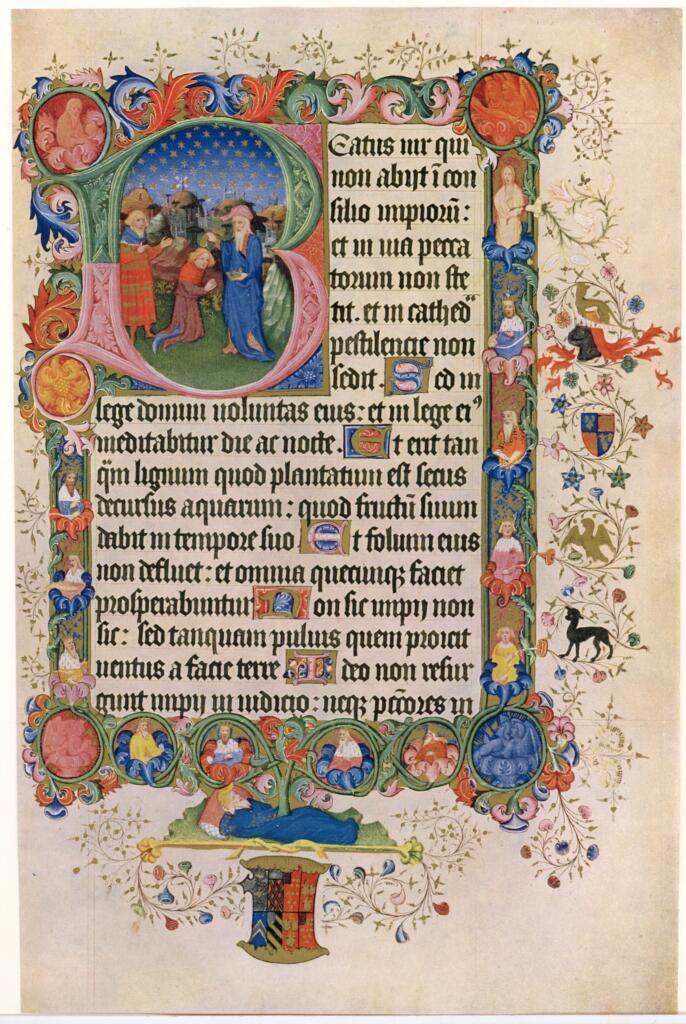 Beatus uir qui
non abijt ĩ con
silio impiorũ:
et in uia pecca
torum non ste
tit. et in cathedᵃ
pestilencie non
sedit. Sed in
lege domini uoluntas eius: et in lege eiꝰ
meditabitur die ac nocte. Et erit tan
q̃m lignum quod plantatum est secus
decursus aquarum: quod fructũ suum
dabit in tempore suo Et folium eius
non defluet: et omnia quecunqꝫ faciet
prosperabuntur Non sic impij non
sic: sed tanquam puluis quem proicit
uentus a facie terre Ideo non resur
gunt impij in iudicio: neqꝫ pc̃cores in